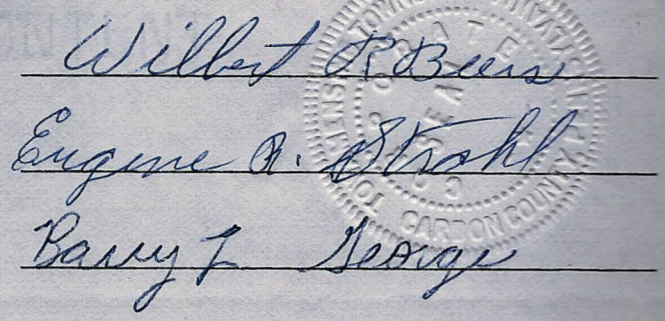 Wilbert R Beers
Eugene R. Strohl
Barry L George
CARBON COUNTY